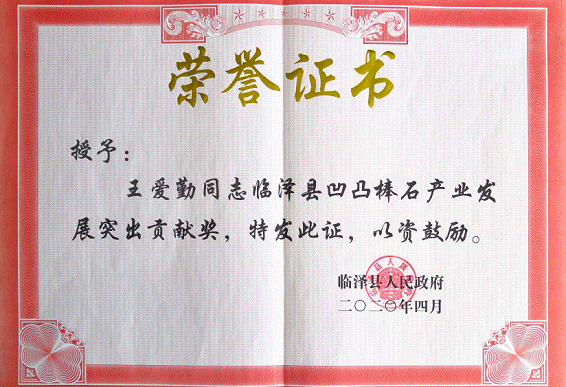 荣誉证书
授予：
王爱勤同志临泽县凹凸棒石产业发
展突出贡献奖，特发此证，以资鼓励。
临泽县人民政府
二〇二〇年四月